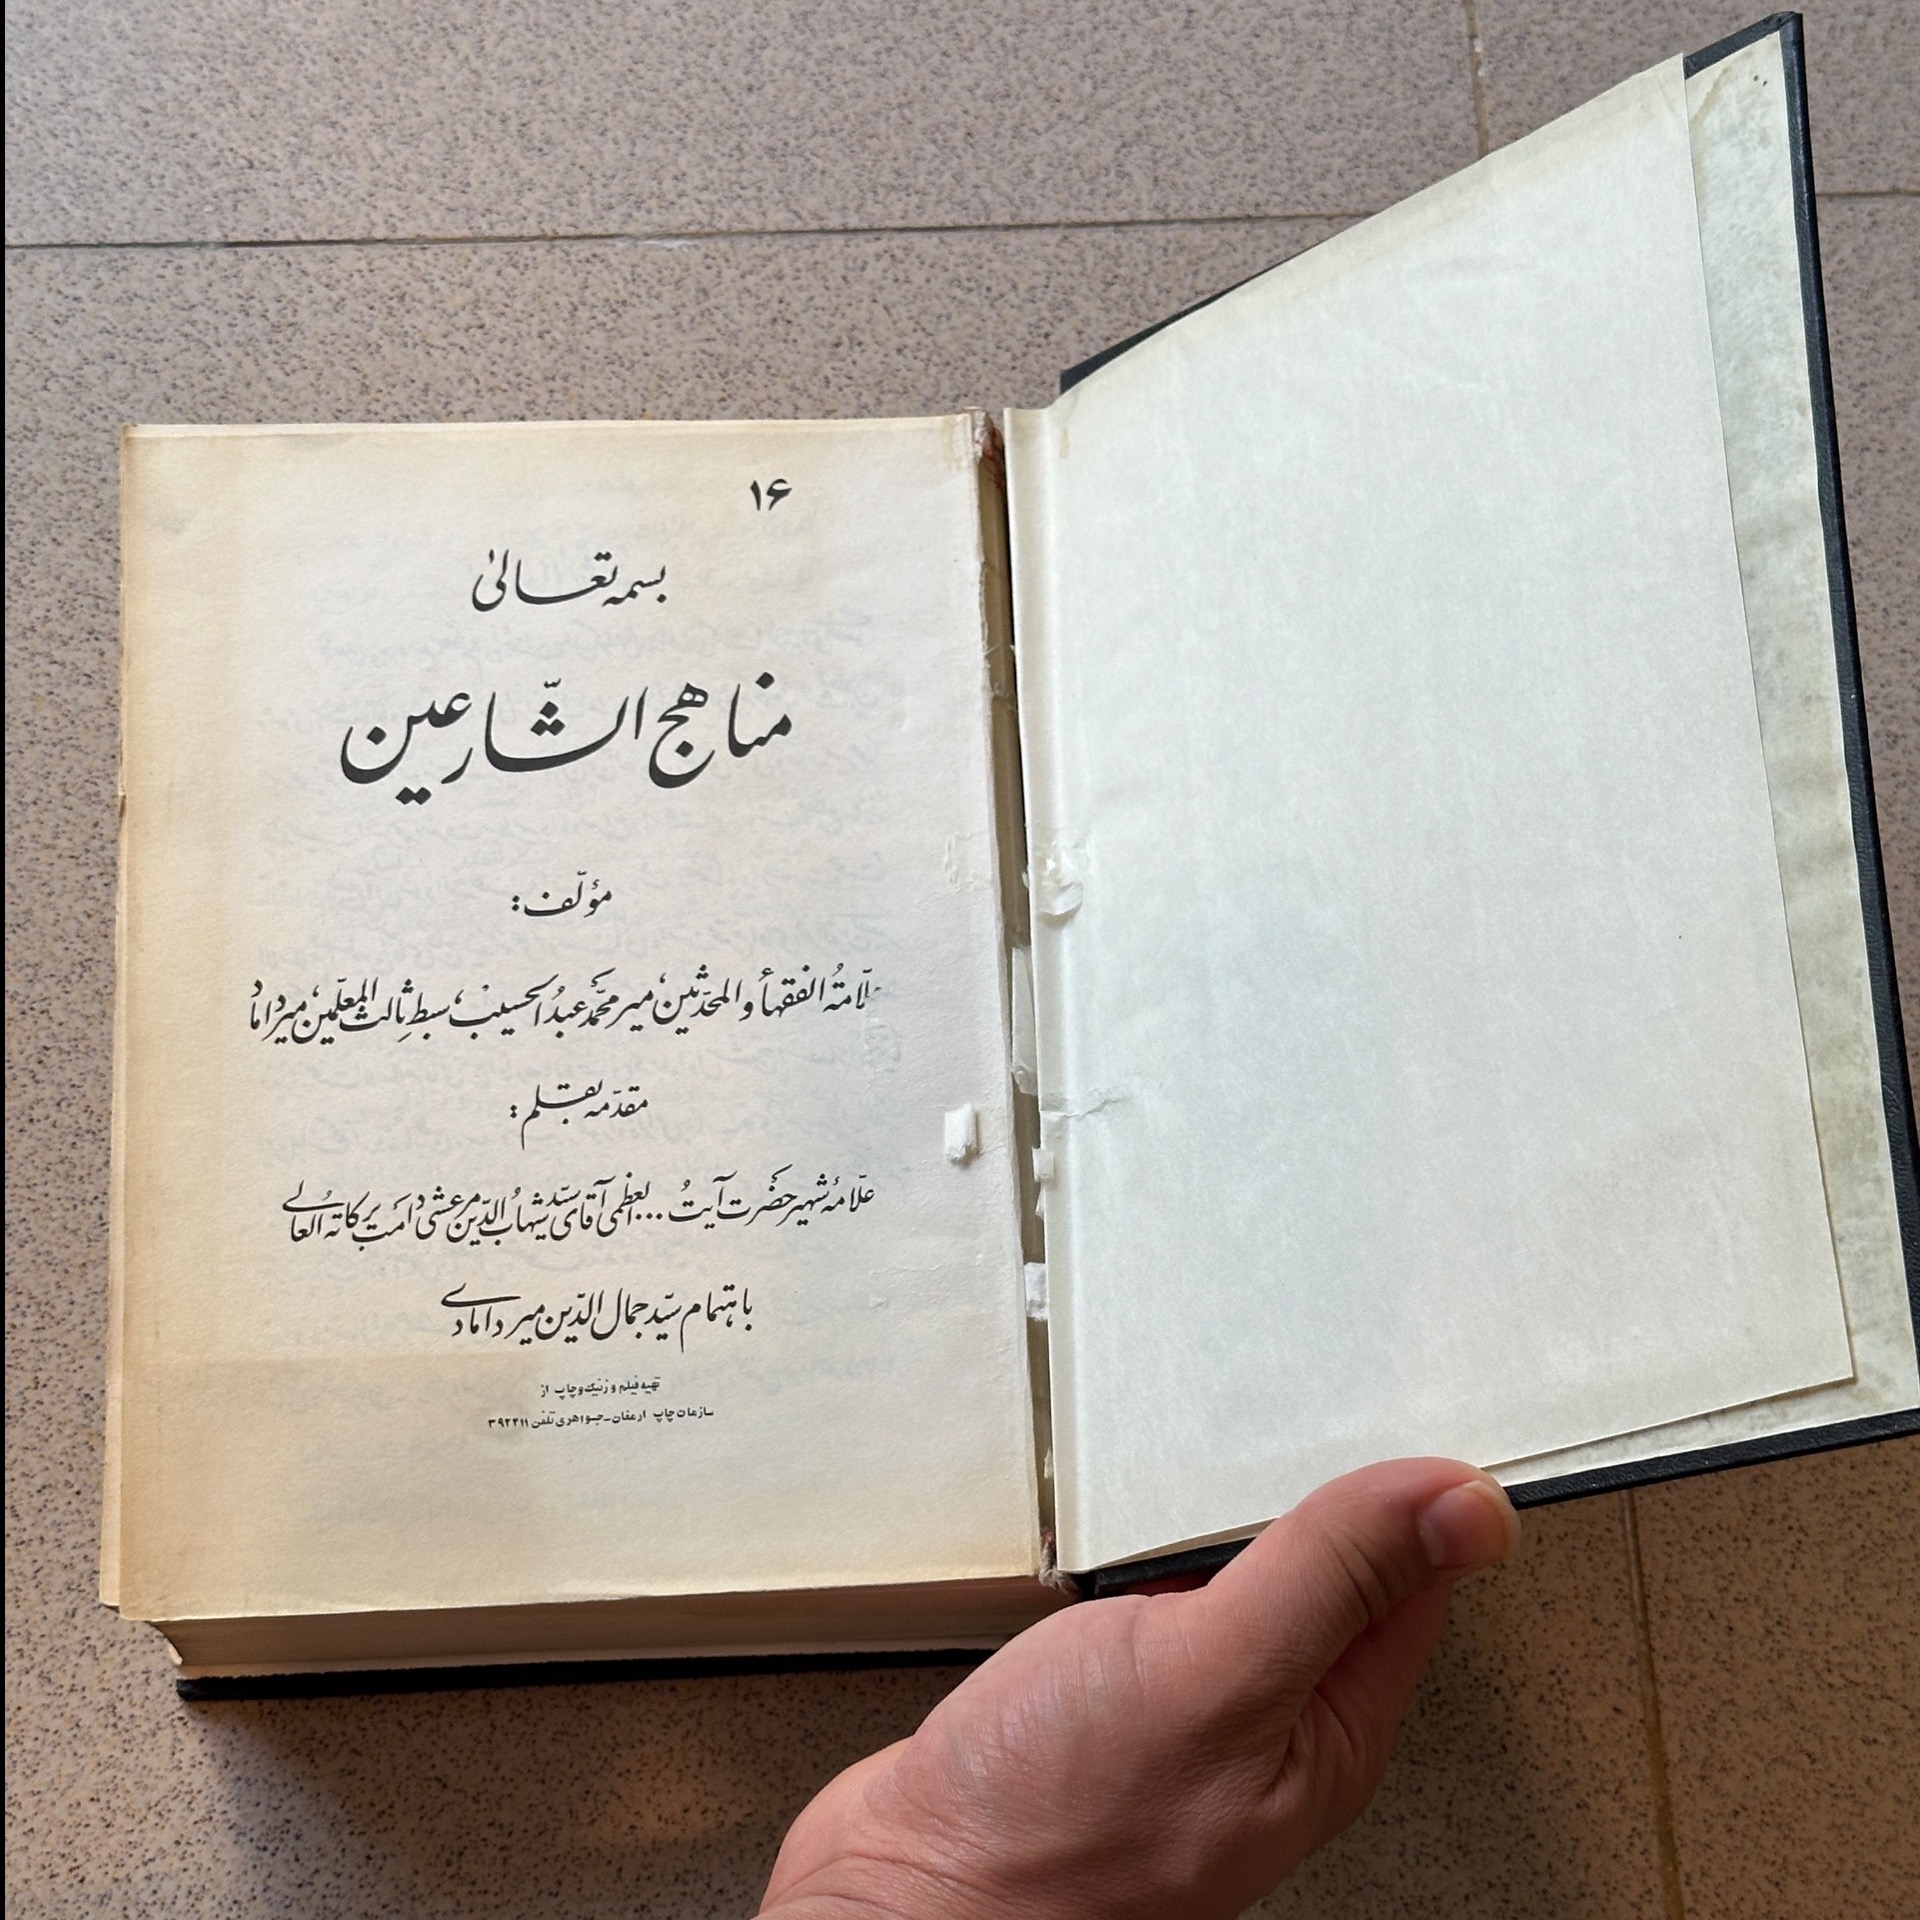 ۱۶
بسمه تعالیٰ
مناهج الشّارعین
مؤلّف :
علّامهٔ الفقهأ والمحدّثین، میرمحمّد عبدُالحسیب، سبطِ ثالث المعلّمین، میرداماد
مقدّمه بقلم :
علّامهٔ شهیر حضرت آیتُ ... العظمی آقای سیّد شهابُ الدّین مرعشی دامَت برکاته العالی
باهتمام سیّد جمال الدّین میردامادی
تهیه فیلم و زنیک و چاپ از
سازمان چاپ ارمغان_جواهری تلفن ۳۹۲۲۱۱